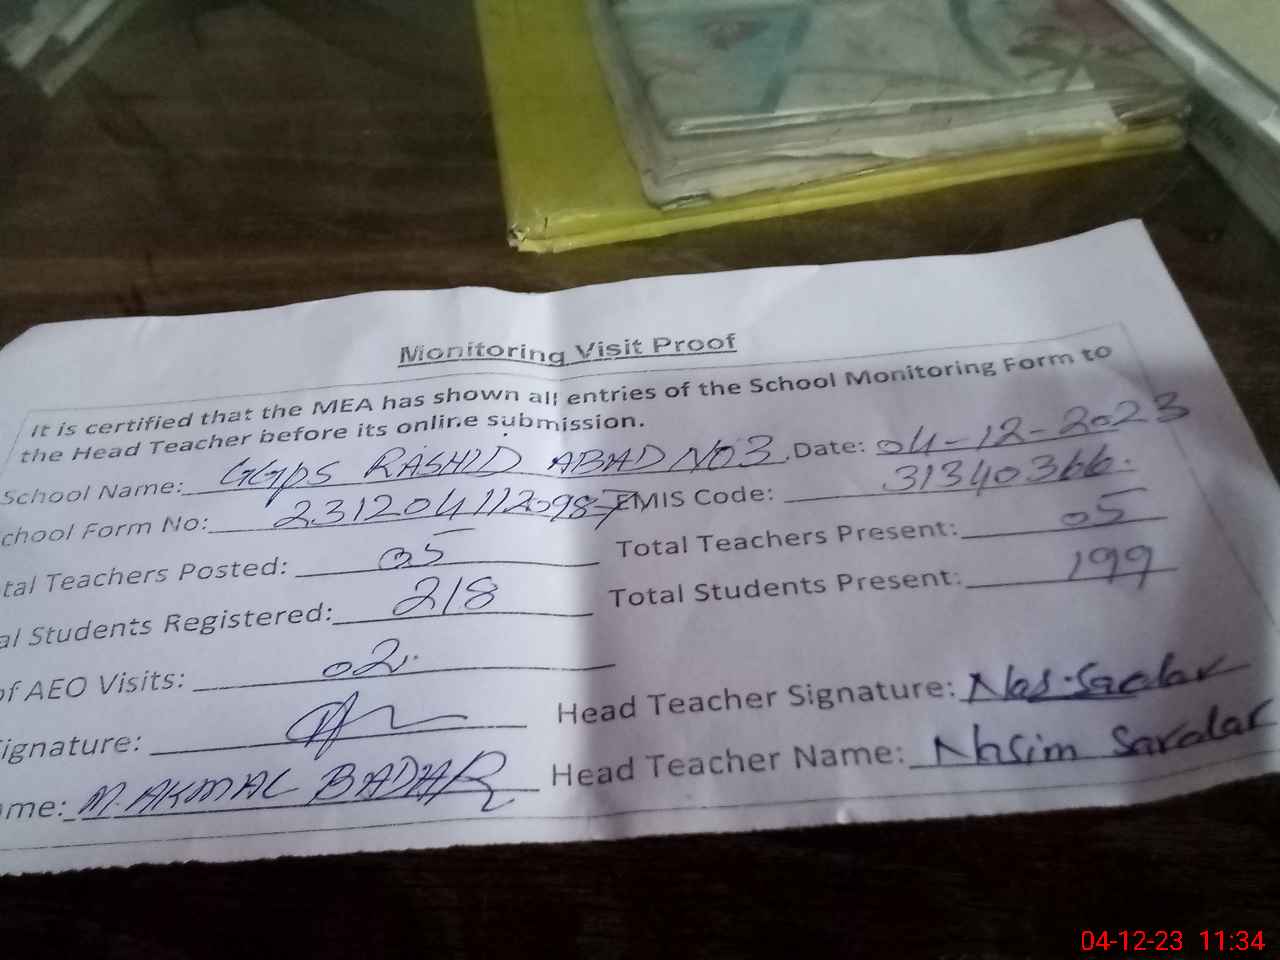 Monitoring Visit Proof
It is certified that the MEA has shown all entries of the School Monitoring Form to
the Head Teacher before its online submission.
School Name: GGPS RASHID ABAD NO3 Date: 04-12-2023
chool Form No: 2312041120987 EMIS Code: 31340366.
tal Teachers Posted: 05 Total Teachers Present: 05
al Students Registered: 218 Total Students Present: 199
of AEO Visits: 02.
ignature: Head Teacher Signature:
ame: M. AKMAL BADAR Head Teacher Name: Nasim
04-12-23 11:34